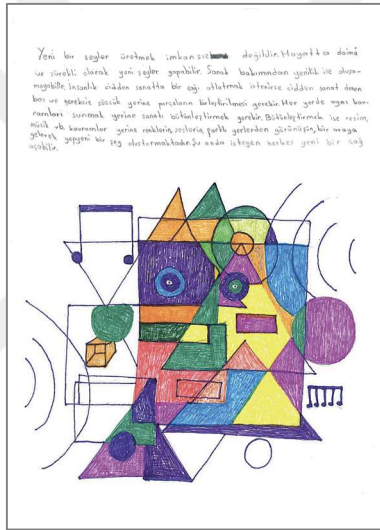 Yeni bir şeyler üretmek imkansız değildir. Hayatta daima
ve sürekli olarak yeni şeyler yapabilir. Sanat bakımından yenilik ise oluşa-
mayabilir. İnsanlık cidden sanatta bir çağ atlatmak istenirse cidden sanat denen
boş ve gereksiz sözcük yerine parçaların birleştirilmesi gerekir. Her yerde aynı kav-
ramları sunmak yerine sanatı bütünleştirmek gerekir. Bütünleştirmek ise resim,
müzik vb. kavramlar yerine renklerin, seslerin, farklı yerlerden görünüşün, bir araya
gelerek yepyeni bir şey oluşturmaktadır. Şu anda isteyen herkes yeni bir çağ
açabilir.